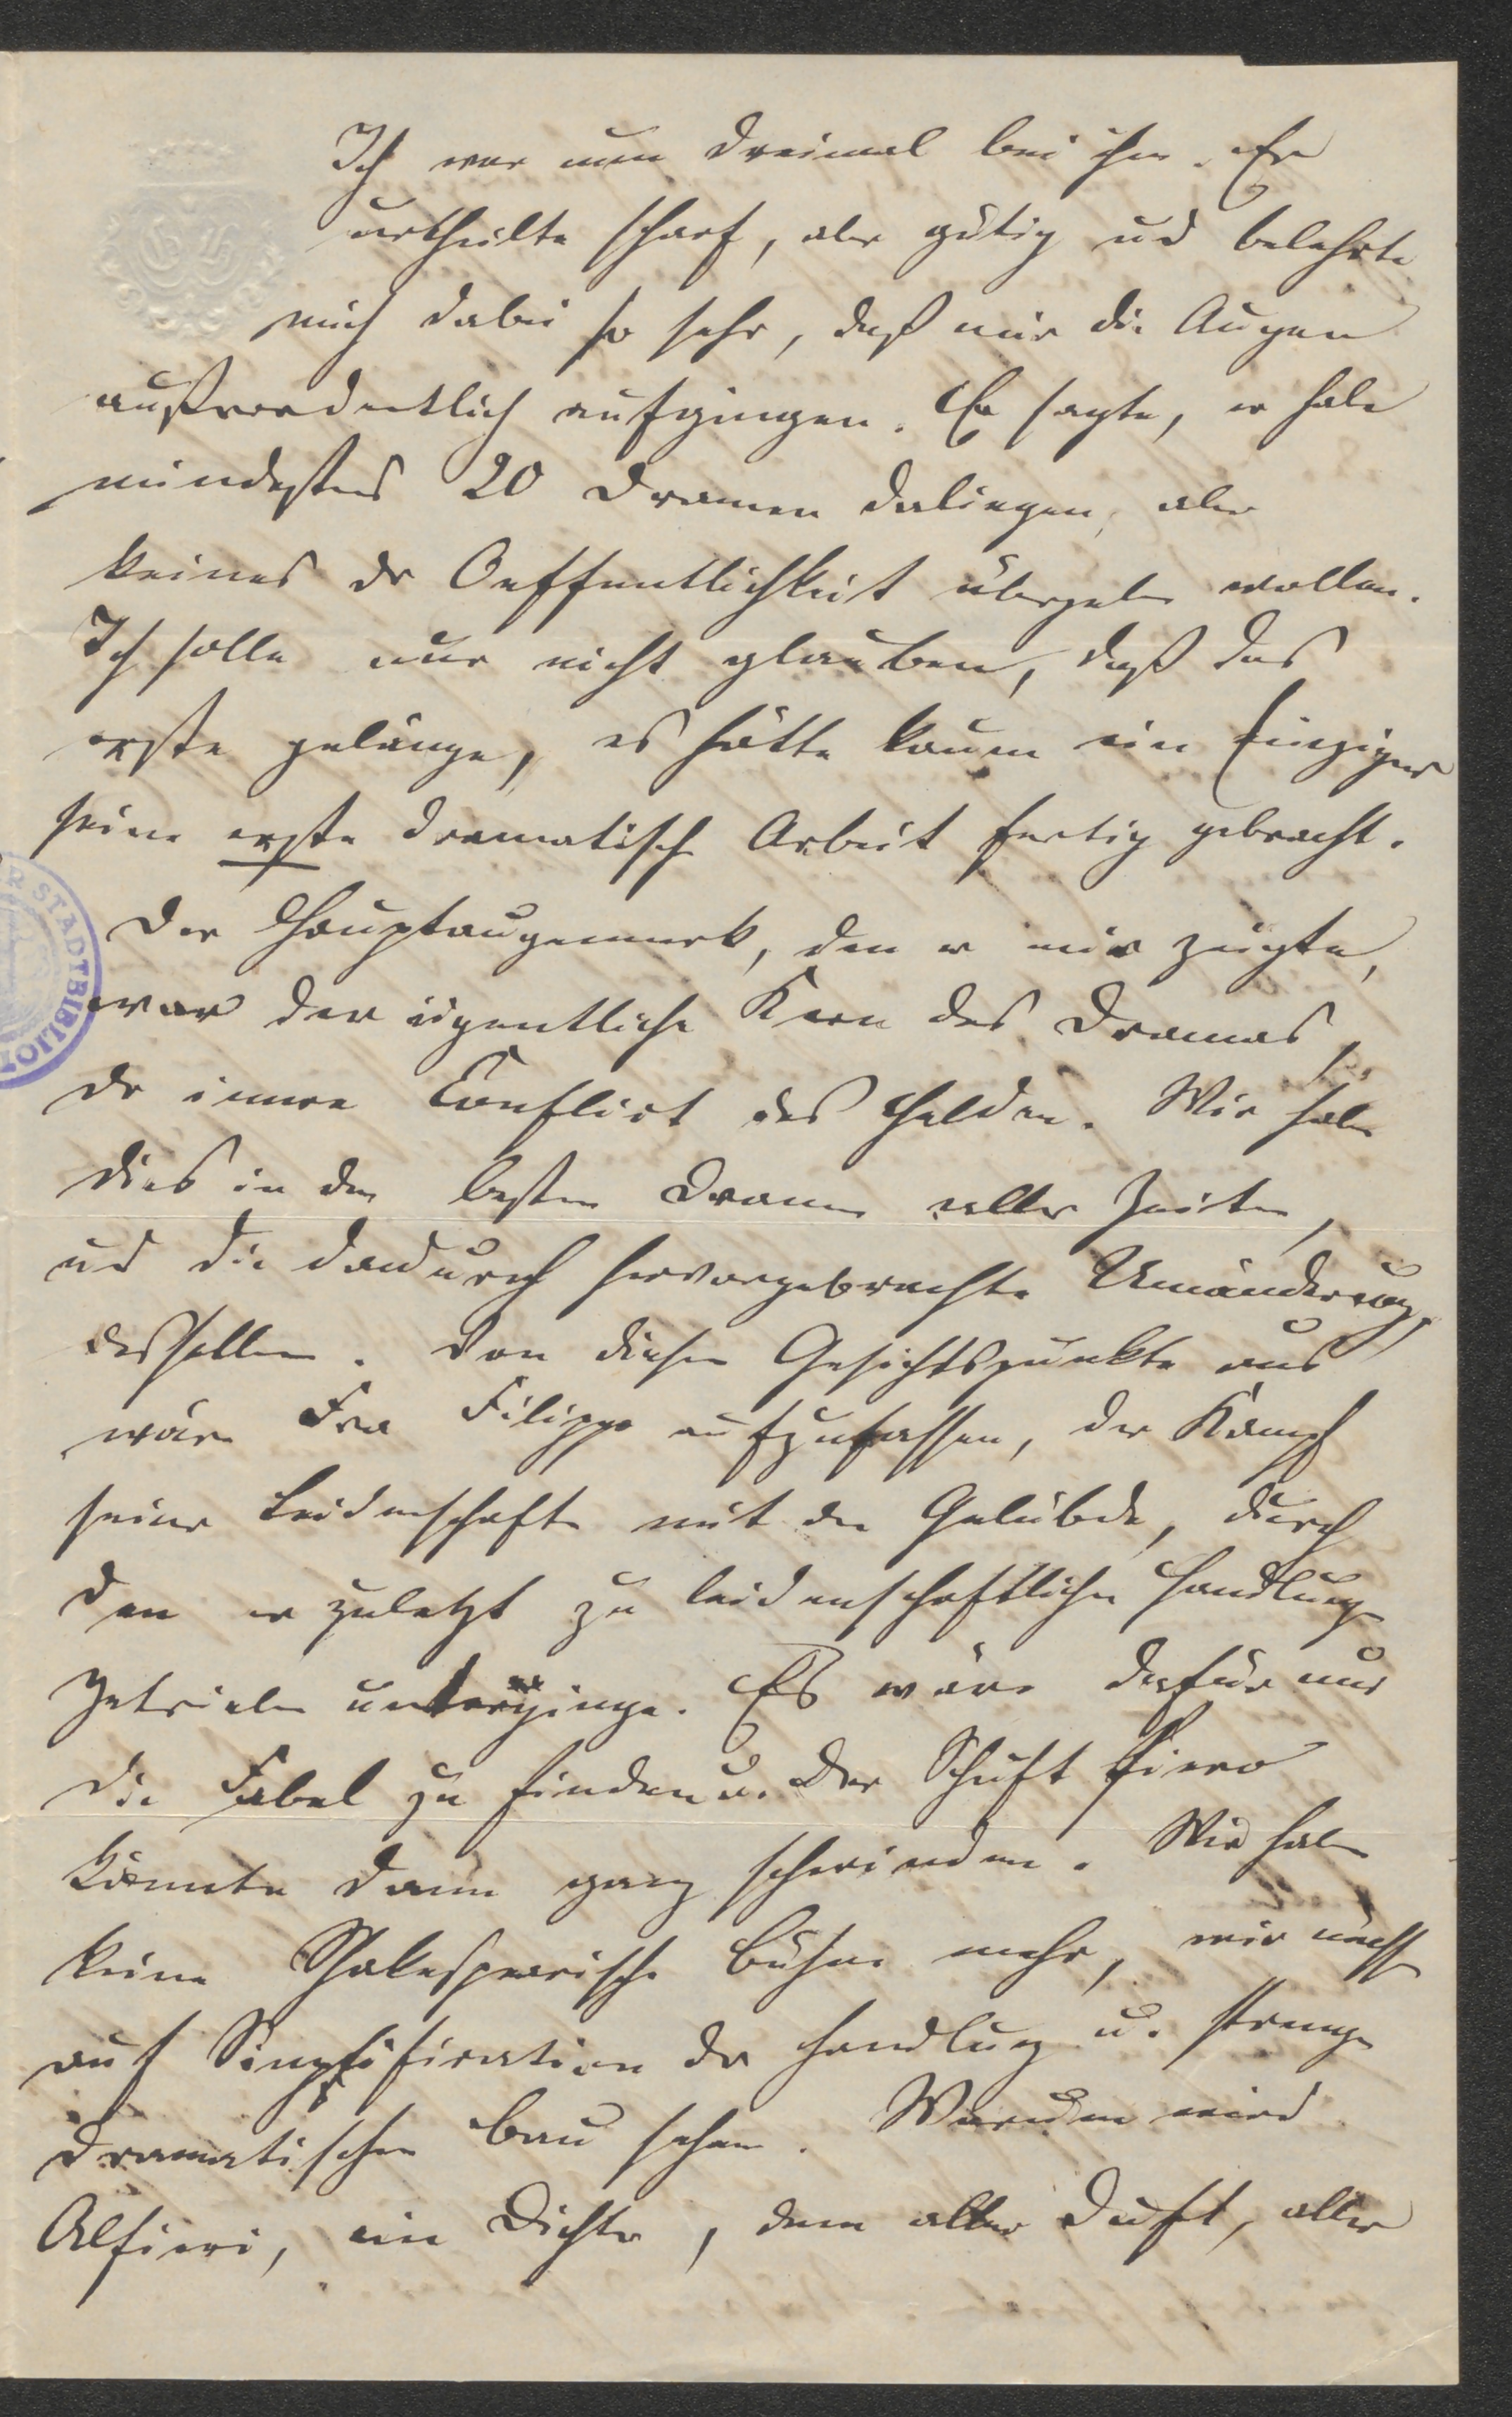 Ich war nun dreimal bei ihm. Er
urtheilte scharf, aber gütig und belehrte
mich dabei so sehr, daß mir die Augen
außerordentlich aufgingen. Er sagte, er habe
mindestens 20 Dramen daliegen, aber
keines der Oeffentlichkeit übergeben wollen.
Ich solle nur nicht glauben, daß das
erste gelänge, es hätte kaum ein Einziger
seine erste dramatische Arbeit fertig gebracht.
Der Hauptaugenmerk, den er mir zeigte,
war der eigentliche Kern des Dramas,
der innere Conflict des Helden. Wir haben
dies in den besten Dramen aller Zeiten,
und die dadurch hervorgebrachte Umänderung
desselben. Von diesem Gesichtspunkte aus
wäre Fra Filippo aufzufassen, der Kampf
seiner Leidenschaften mit dem Gelübde, durch
den er zuletzt zu leidenschaftlichen Handlungen
getrieben unterginge. Es wäre dafür nur
die Fabel zu finden u. Der Schuft Piero
könnte dann ganz schwinden. Wir haben
keine Shakespearische Bühne mehr, wir müssen
auf Simplification der Handlung u. strengen
dramatischen Bau sehen. Warum wird
Alfieri, ein Dichter, dem aller Duft, aller
STADTBIBLIOT